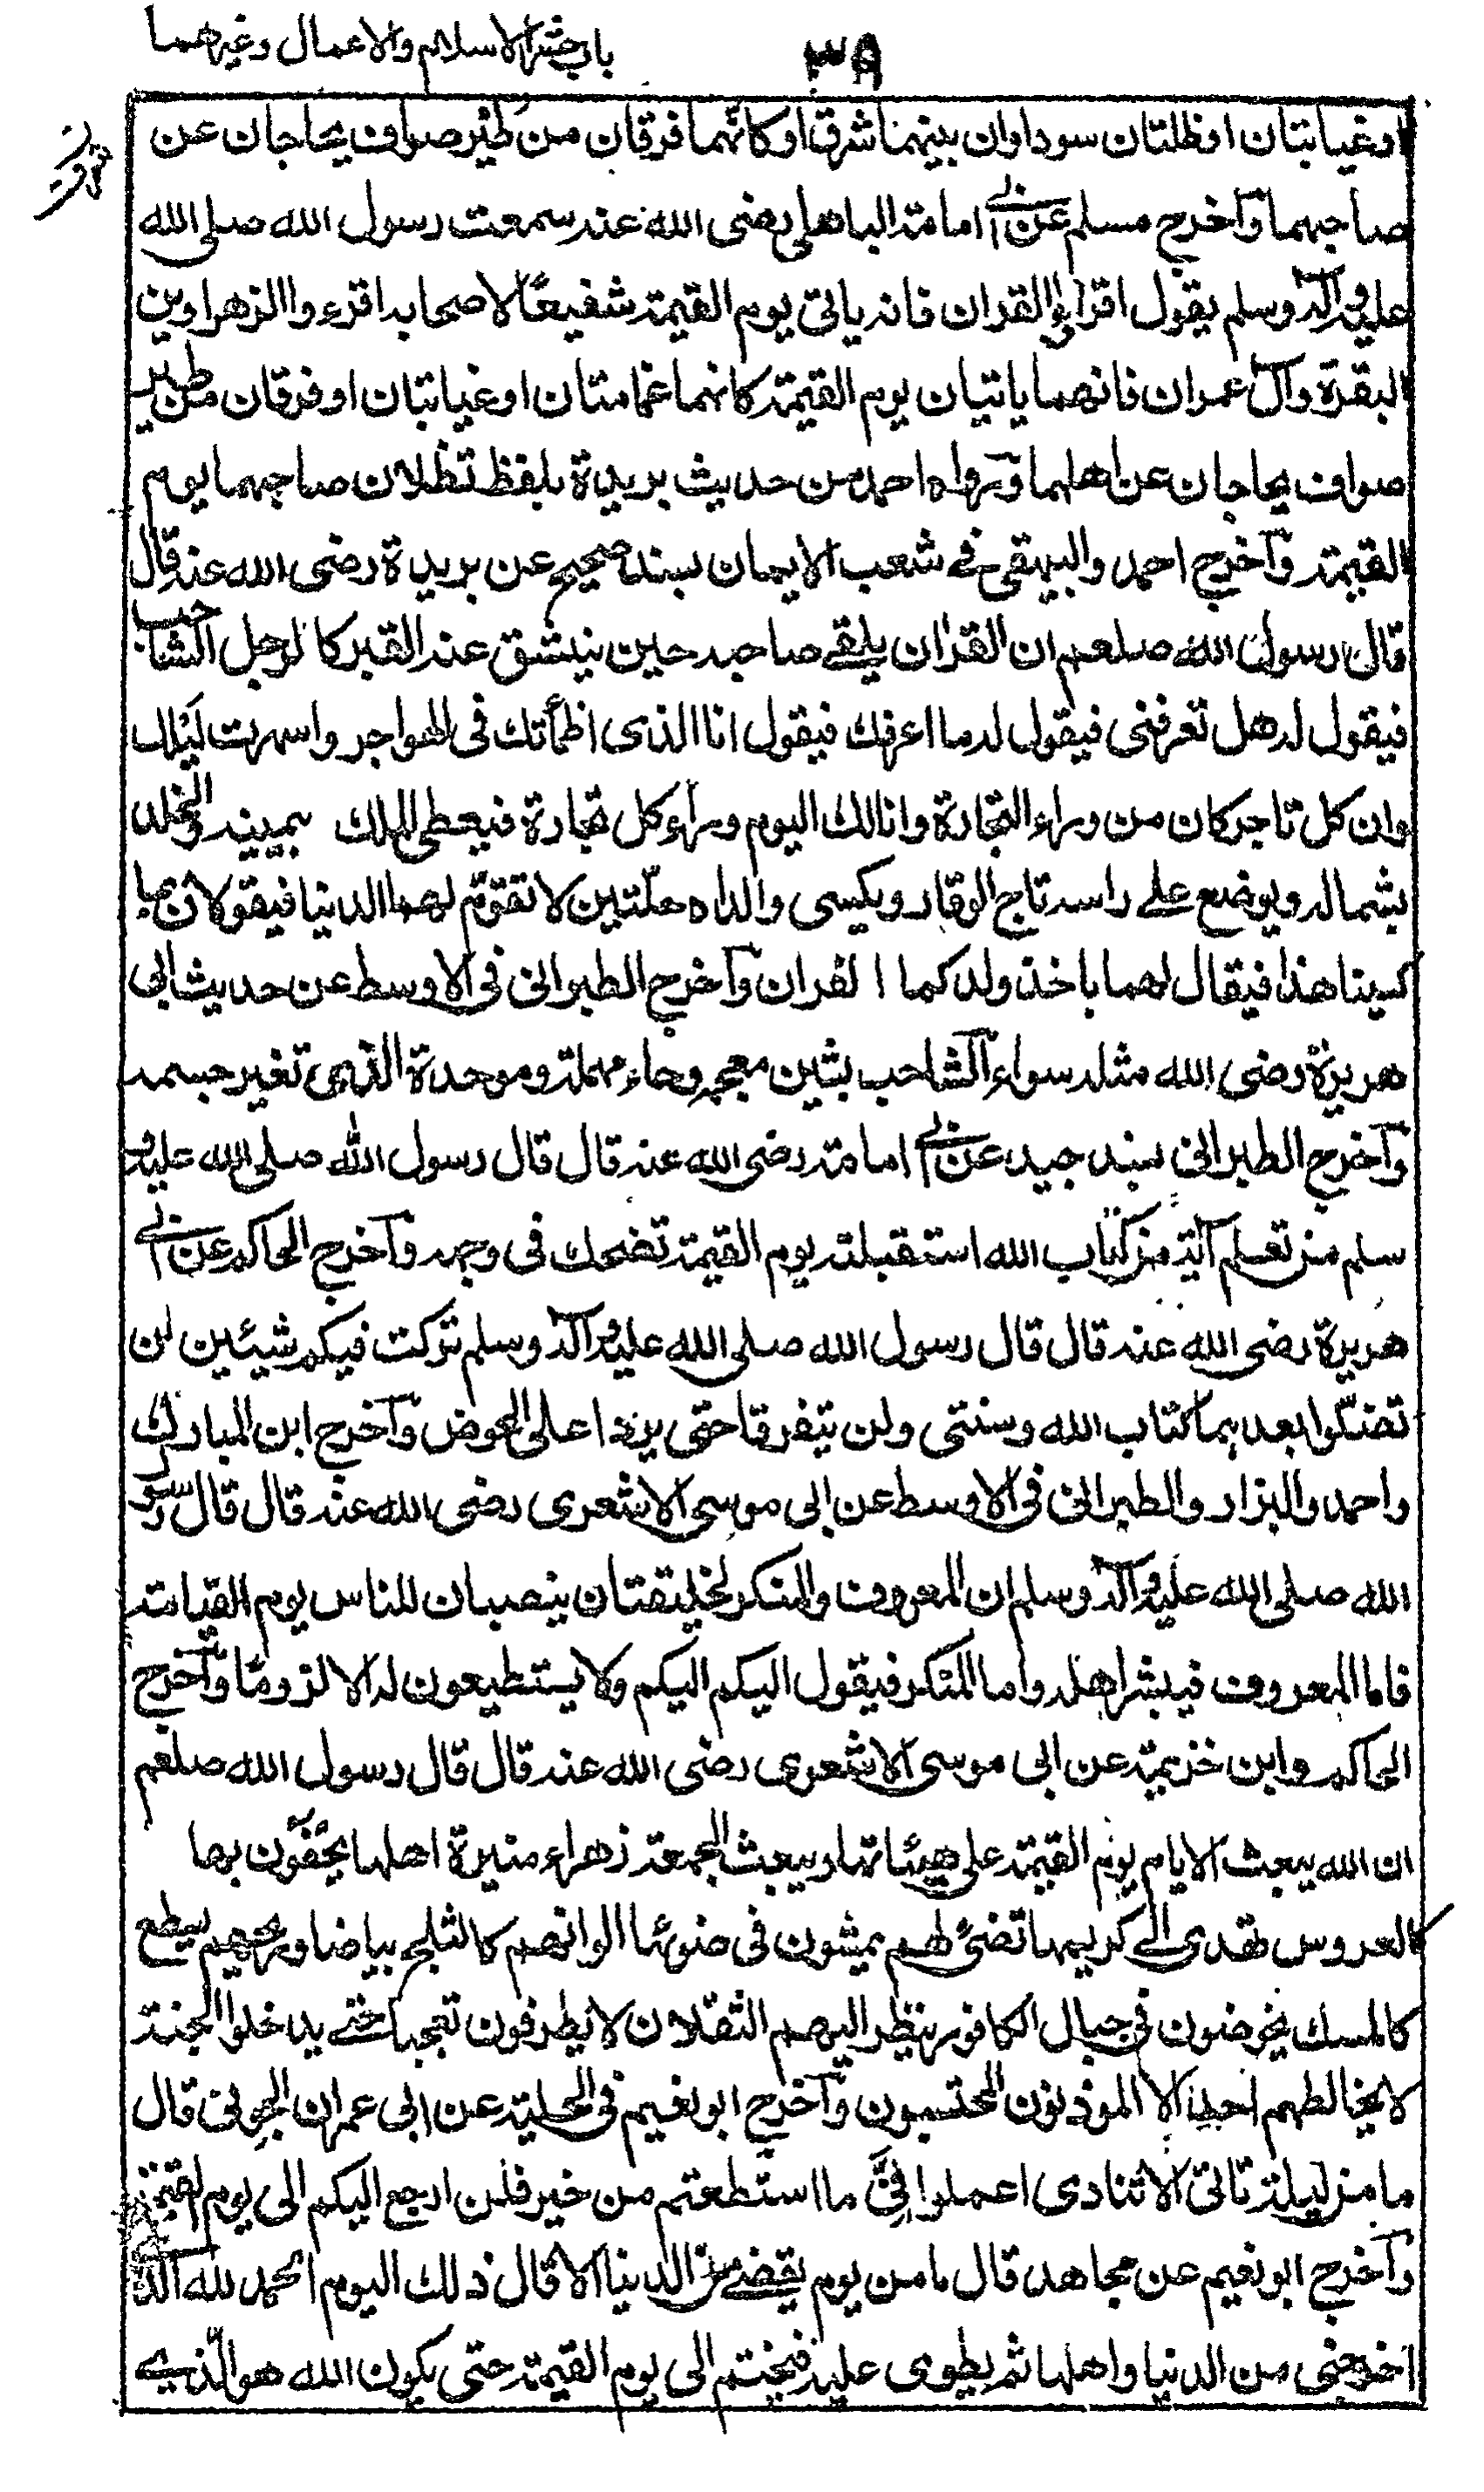 ٣٩
باب حشر الاسلام والاعمال وغيرهما
اوغيابتان اوظلتان سوداوان بينهما شرق او كانهما فرقان من طير صواف يحاجان عن
صاحبهما وآخرج مسلم عن ابي امامة الباهلي رضى الله عنه سمعت رسول الله صلى الله
عليه وآله وسلم يقول اقرأوا القران فانه ياتى يوم القيمة شفيعًا لاصحابه اقرءوا الزهراوين
البقرة وآل عمران فانهما ياتيان يوم القيمة كانهما غمامتان اوغيابتان اوفرقان من طير
صواف يحاجان عن اهلهما ورواه احمد من حديث بريدة بلفظ تظلان صاحبهما يوم
القيمة وآخرج احمد والبيهقى فے شعب الايمان بسند صحيح عن بريدة رضى الله عنه قال
قال رسول الله صلعم ان القران يلقے صاحبه حين ينشق عنه القبر كالرجل الشاحب
فيقول له هل تعرفنى فيقول له ما اعرفك فيقول انا الذى اظمأتك فى الهواجر واسهرت ليلك
وان كل تاجر كان من وراء التجارة وانا لك اليوم وراء كل تجارة فيعطى الملك بيمينه والخلد
بشماله ويوضع علے راسه تاج الوقار ويكسى والداه حلّتين لا تقوّم لهما الدنيا فيقولان بما
كسينا هذا فيقال لهما باخذ ولدكما القران وآخرج الطبرانى فى الاوسط عن حديث ابى
هريرة رضى الله مثله سواء الشاحب بشين معجمه وحاء مهملة وموحدة الذى تغير جسمه
وآخرج الطبرانى بسند جيد عن ابي امامة رضى الله عنه قال قال رسول الله صلى الله عليه و
سلم من تعلم آية من كتاب الله استقبلته يوم القيمة تضحك فى وجهه وآخرج الحاكم عن ابي
هريرة رضى الله عنه قال قال رسول الله صلى الله عليه وآله وسلم تركت فيكم شيئين لن
تضلّوا بعدهما كتاب الله وسنتى ولن يتفرقا حتى يردا على الحوض وآخرج ابن المبارك
واحمد والبزار والطبرانى فى الاوسط عن ابى موسى الاشعرى رضى الله عنه قال قال رسول
الله صلى الله عليه وآله وسلم ان المعروف والمنكر لخليقتان ينصبان للناس يوم القيامة
فاما المعروف فيبشر اهله واما المنكر فيقول اليكم اليكم ولا يستطيعون له الا لزومًا وآخرج
الحاكم وابن خزيمة عن ابى موسى الاشعرى رضى الله عنه قال قال رسول الله صلعم
ان الله يبعث الايام يوم القيمة على هيئاتها ويبعث الجمعة زهراء منيرة اهلها يحفّون بها
كالعروس تهدى الى كريمها تضئ لهم يمشون فى ضوئها الوانهم كالثلج بياضا وريحهم يسطع
كالمسك يخوضون فى جبال الكافور ينظر اليهم الثقلان لا يطرفون تعجبا حتے يدخلوا الجنة
لا يخالطهم احد الا الموذنون المحتسبون وآخرج ابو نعيم فى الحلية عن ابى عمران الجونى قال
ما من ليلة تاتى الا تنادى اعملوا فىَّ ما استطعتم من خير فلن ارجع اليكم الى يوم القيمة
وآخرج ابو نعيم عن مجاهد قال ما من يوم يقضے من الدنيا الا قال ذلك اليوم الحمد لله الذى
اخرجنى من الدنيا واهلها ثم يطوى عليه فيختم الى يوم القيمة حتى يكون الله هو الذے